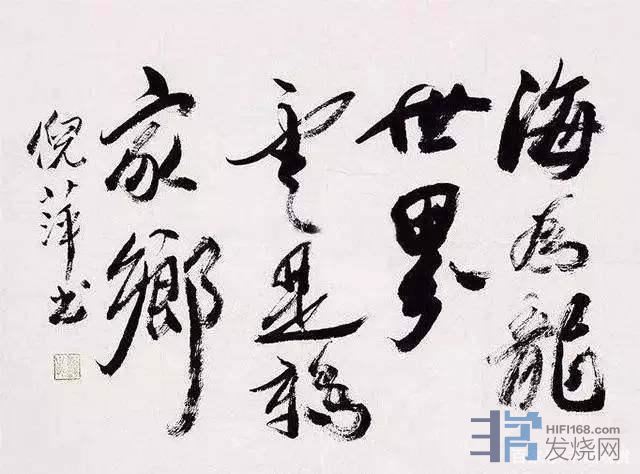 海為龍
世界
雲是鶴
家鄉
倪萍书
HIFI168.com
发烧网